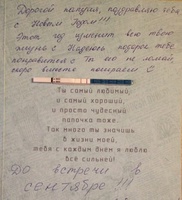 Дорогой папуля, поздравляю тебя
с Новым Годом!!!
Этот год изменит всю твою
жизнь. Надеюсь подарок тебе
понравится. Ты его не ломай,
скоро вместе поиграем!
Ты самый любимый,
и самый хороший,
и просто чудесный
папочка тоже.
Так много ты значишь
в жизни моей,
тебя с каждым днем я люблю
всё сильней!
До встречи в
сентябре!!!